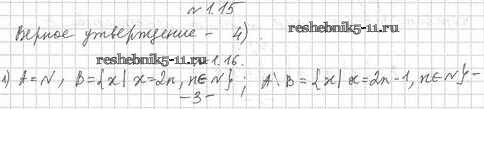 № 1.15
Верное утверждение - 4).
reshebnik5-11.ru
reshebnik5-11.ru 1.16.
1) A = N, B = {x | x = 2n, n ∈ N}; A \ B = {x | x = 2n - 1, n ∈ N} -
- 3 -